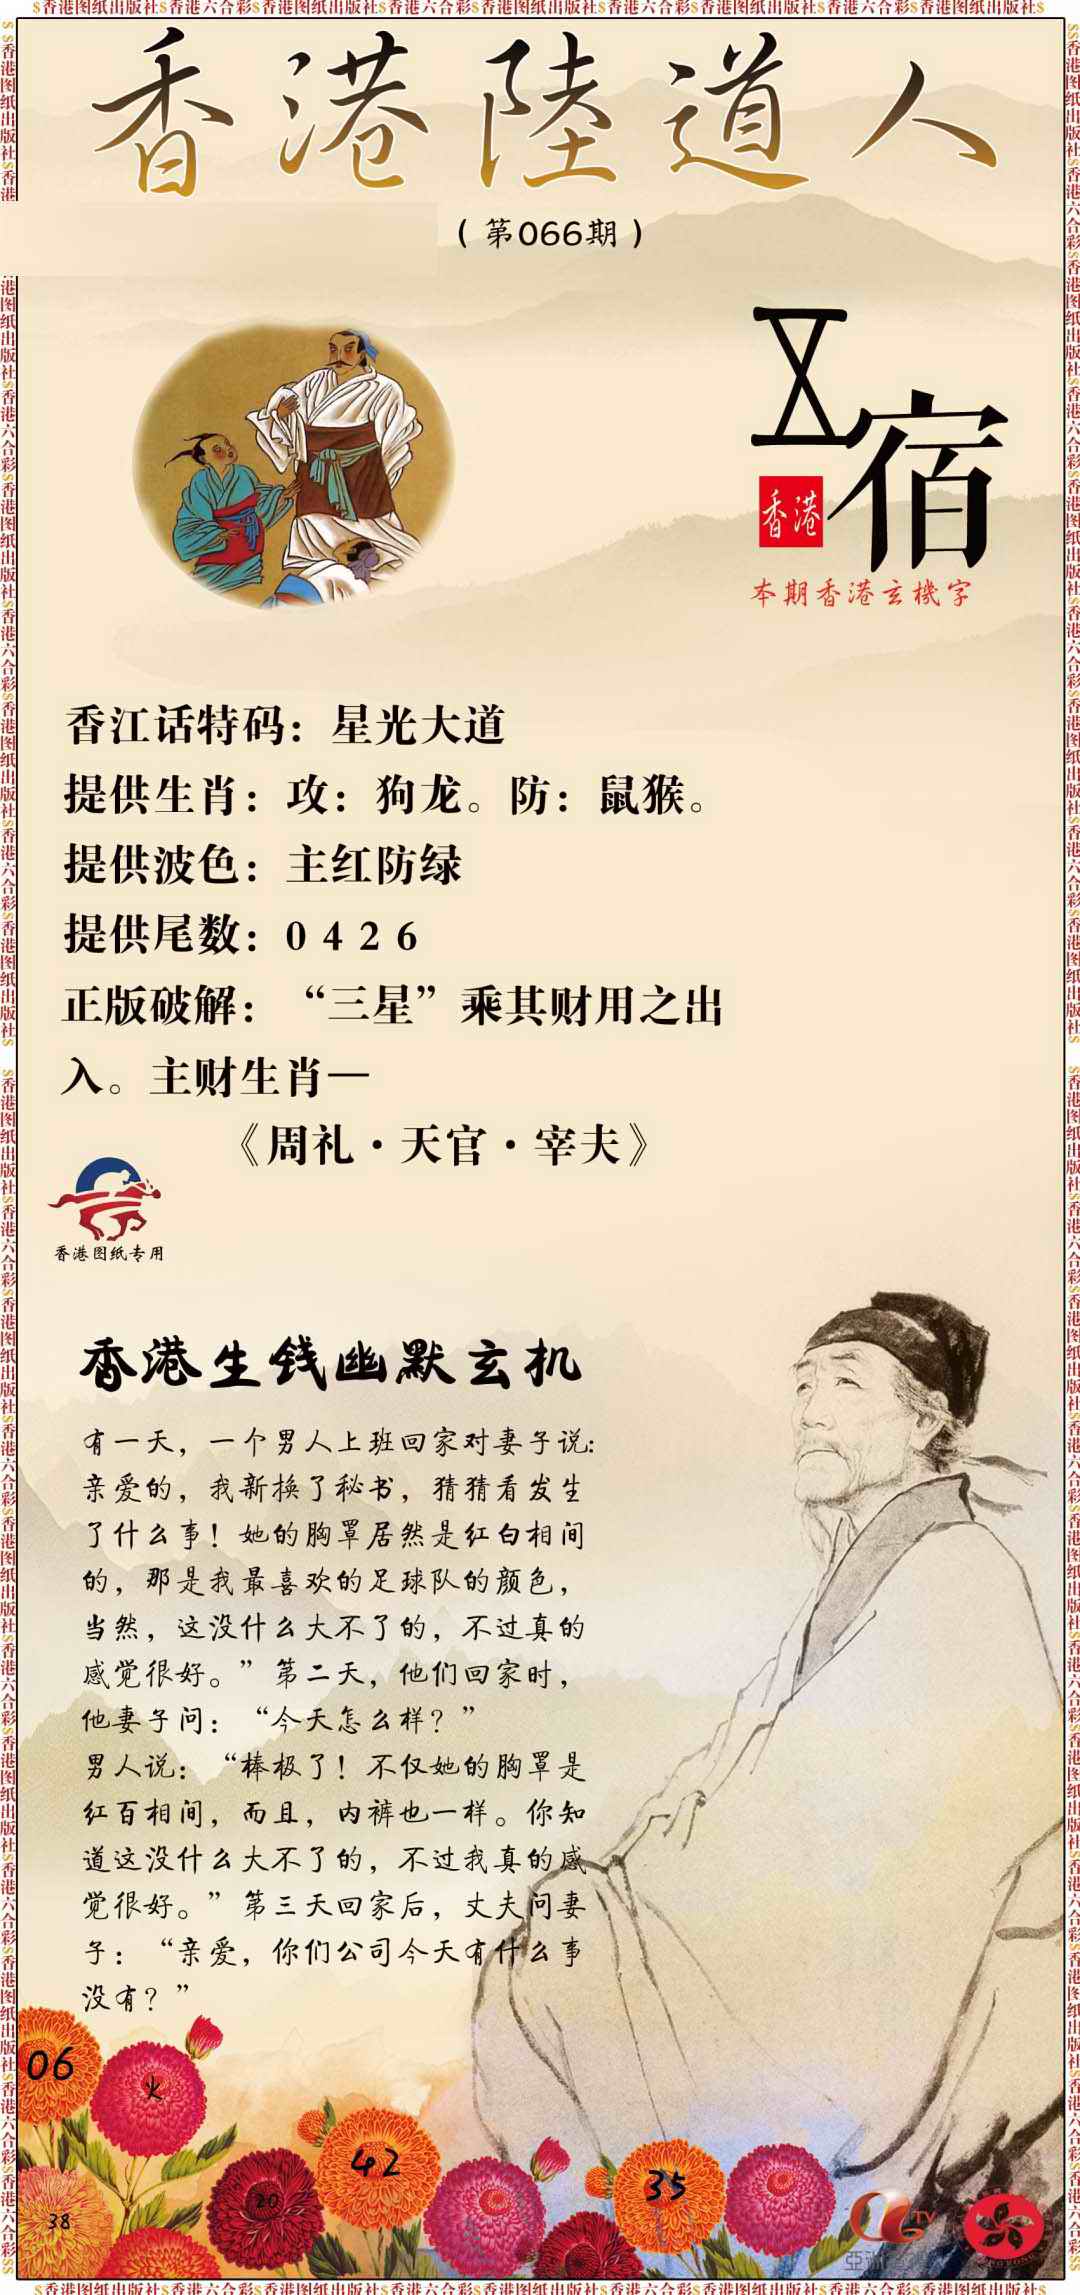 $香港图纸出版社$香港六合彩$香港图纸出版社$香港六合彩$香港图纸出版社$香港六合彩$香港图纸出版社$香港六合彩$香港图纸出版社$
香港陸道人
(第066期)
宿
香港
本期香港玄機字
香江话特码：星光大道
提供生肖：攻：狗龙。防：鼠猴。
提供波色：主红防绿
提供尾数：0 4 2 6
正版破解：“三星”乘其财用之出
入。主财生肖—
《周礼·天官·宰夫》
香港图纸专用
香港生钱幽默玄机
有一天，一个男人上班回家对妻子说:
亲爱的，我新换了秘书，猜猜看发生
了什么事！她的胸罩居然是红白相间
的，那是我最喜欢的足球队的颜色，
当然，这没什么大不了的，不过真的
感觉很好。”第二天，他们回家时，
他妻子问：“今天怎么样？”
男人说：“棒极了！不仅她的胸罩是
红百相间，而且，内裤也一样。你知
道这没什么大不了的，不过我真的感
觉很好。”第三天回家后，丈夫问妻
子：“亲爱，你们公司今天有什么事
没有？”
06
火
42
35
20
38
TV